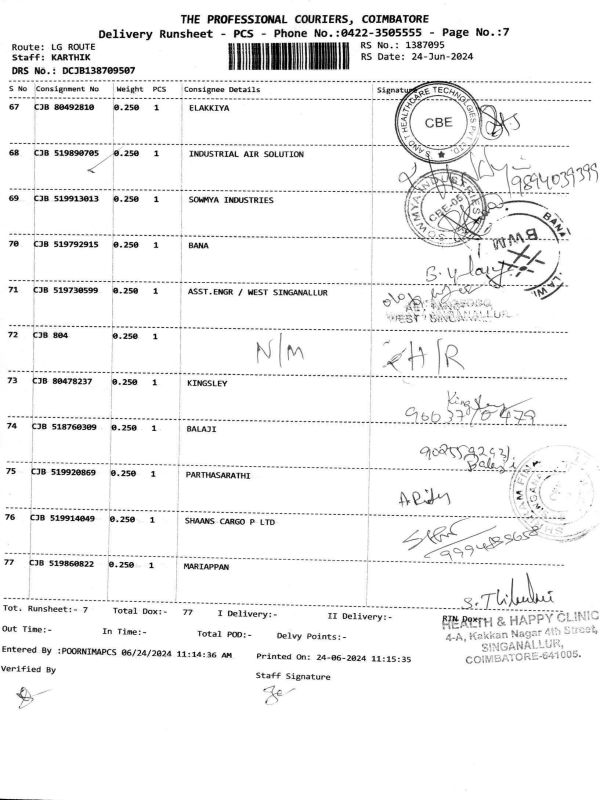 THE PROFESSIONAL COURIERS, COIMBATORE
Delivery Runsheet - PCS - Phone No.:0422-3505555 - Page No.:7
Route: LG ROUTE RS No.: 1387095
Staff: KARTHIK RS Date: 24-Jun-2024
DRS No.: DCJB138709507
S No Consignment No Weight PCS Consignee Details Signature
67 CJB 80492810 0.250 1 ELAKKIYA
CBE
68 CJB 519890705 0.250 1 INDUSTRIAL AIR SOLUTION
9894039399
69 CJB 519913013 0.250 1 SOWMYA INDUSTRIES
SOWMYA INDUSTRIES
CBE-05
70 CJB 519792915 0.250 1 BANA
BANA
BWM
71 CJB 519730599 0.250 1 ASST.ENGR / WEST SINGANALLUR
WEST SINGANALLUR
72 CJB 804 0.250 1 N/M
73 CJB 80478237 0.250 1 KINGSLEY
Kingsley
74 CJB 518760309 0.250 1 BALAJI
Balaji
75 CJB 519920869 0.250 1 PARTHASARATHI
76 CJB 519914049 0.250 1 SHAANS CARGO P LTD
77 CJB 519860822 0.250 1 MARIAPPAN
Tot. Runsheet:- 7 Total Dox:- 77 I Delivery:- II Delivery:- RTN Dox:-
Out Time:- In Time:- Total POD:- Delvy Points:-
HEALTH & HAPPY CLINIC
4-A, Kakkan Nagar 4th Street,
SINGANALLUR,
COIMBATORE-641005.
Entered By :POORNIMAPCS 06/24/2024 11:14:36 AM Printed On: 24-06-2024 11:15:35
Verified By Staff Signature